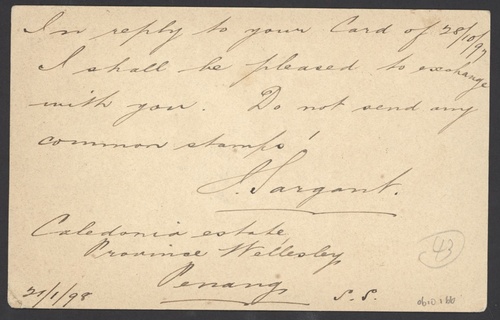 In reply to your Card of 28/10/97
I shall be pleased to exchange
with you. Do not send any
common stamps!
J. Sargant.
Caledonia estate
Province Wellesley
Penang
S.S.
21/1/98
43